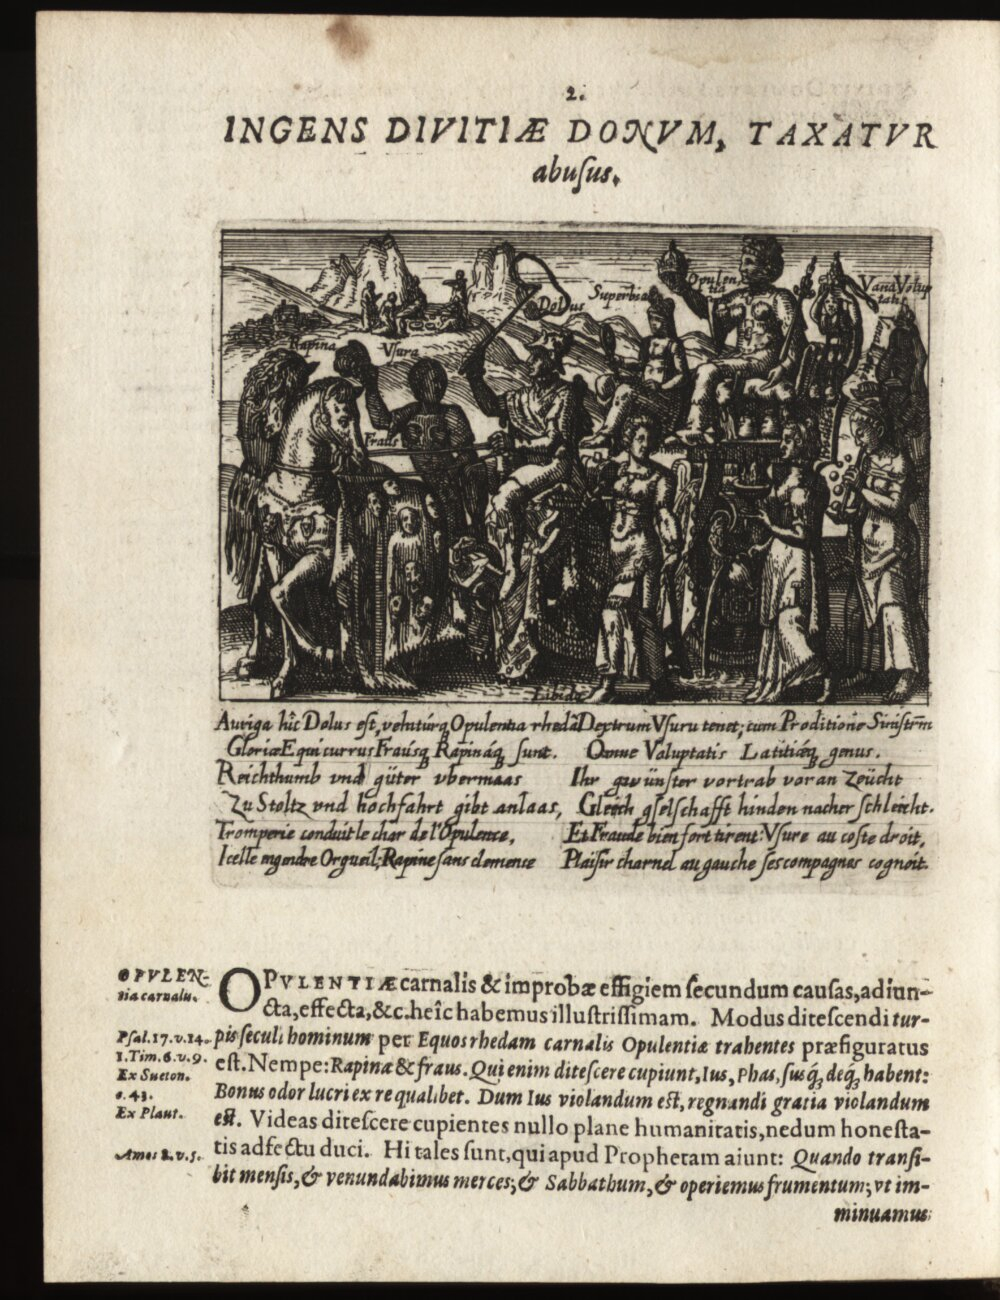 2.
INGENS DIVITIÆ DONVM, TAXATVR
abuſus.
Opulen
tia
Vana Volup
tabs
Dolus
Superbia
Rapina
Vſura
Fraus
Libido
Auriga hîc Dolus est, vehitúrq Opulentia rhedâ
Gloriæ Equi currus Fraúsq Rapináq sunt.
Reichthumb vnd güter vbermaas
Zu Stoltz vnd hochfahrt gibt anlaas,
Tromperie conduit le char de l'Opulence,
Icelle engendre Orgueil; Rapine sans clemence
Dextrum Vsura tenet; cum Proditione Sinistrm
Omne Voluptatis Latitiǽq genus.
Ihr günster vortrab voran Zeücht
Gleich gselschafft hinden nacher schleicht.
Et Fraude bien fort tirent: Vsure au coste droit,
Plaisir charnel au gauche ses compagnes cognoit.
OPVLEN-
tia carnalis.
OPVLENTIÆ carnalis & improbæ effigiem ſecundum cauſas, adiun-
cta, effecta, &c. heîc habemus illuſtriſſimam. Modus diteſcendi tur-
Pſal. 17. v. 14.
pis ſeculi hominum per Equos rhedam carnalis Opulentiæ trahentes præfiguratus
1. Tim. 6. v. 9.
eſt. Nempe: Rapina & fraus. Qui enim diteſcere cupiunt, Ius, Phas, ſusq́; deq́; habent:
Ex Sueton.
c. 43.
Bonus odor lucri ex re qualibet. Dum Ius violandum eſt, regnandi gratia violandum
Ex Plaut.
eſt. Videas diteſcere cupientes nullo plane humanitatis, nedum honeſta-
Amos 8. v. 5.
tis adfectu duci. Hi tales ſunt, qui apud Prophetam aiunt: Quando tranſi-
bit menſis, & venundabimus merces; & Sabbathum, & operiemus frumentum; vt im-
minuamus